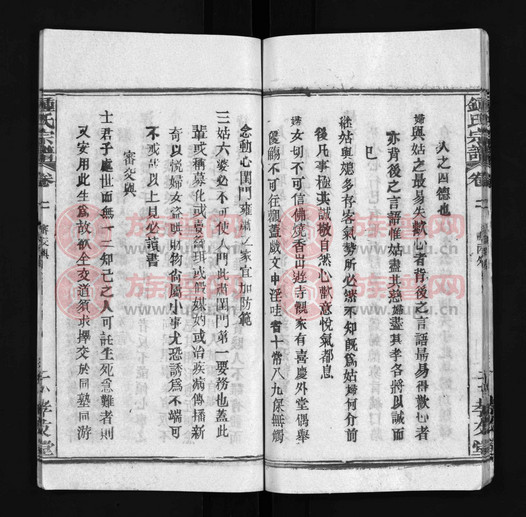 人之四德也
婦與姑之最易失歡心者背後之言語最易得歡心者
亦背後之言語惟姑盡其慈婦盡其孝各將以誠而
已
姑與媳多存客氣勢所必然不知既爲姑婦何分前
後凡事極其誠敬自然心歡意悅氣都息
婦女切不可信佛燒香出遊寺觀家有喜慶外堂偶舉
優觴不可往觀蓋戲文中淫哇者十常八九保無觸
念動心閨門雍肅之家宜加防範
三姑六婆必不可使入門此肅閨門第一要務也蓋此
輩或稱募化或賣簪珥或假媒妁或治疾病傳播新
奇以悅婦女盜哄財物尙屬小事尤恐誘爲不端可
不戒哉以上見必讀書
審交與
士君子處世而無一二知己之人可託生死急難者則
又安用此生爲故欲全交道須乘擇交於同塾同游
鍾氏宗譜
卷二
審交與
孝友堂
鍾氏宗譜
卷二
孝友堂